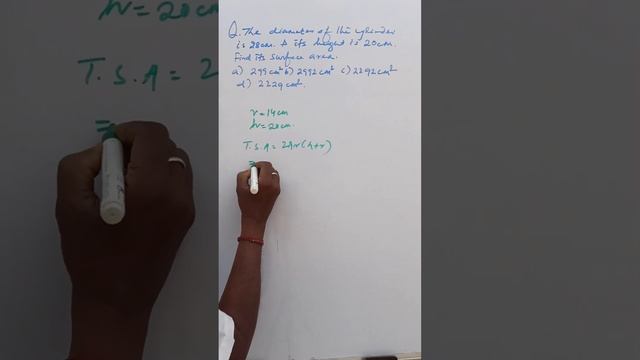 Q. The diameter of the cylinder
is 28cm. & its height is 20cm.
Find its surface area.
a) 299cm² b) 2992cm² c) 2292cm²
d) 2229cm².
r = 14cm
h = 20cm.
T.S.A = 2πr(h+r)
=